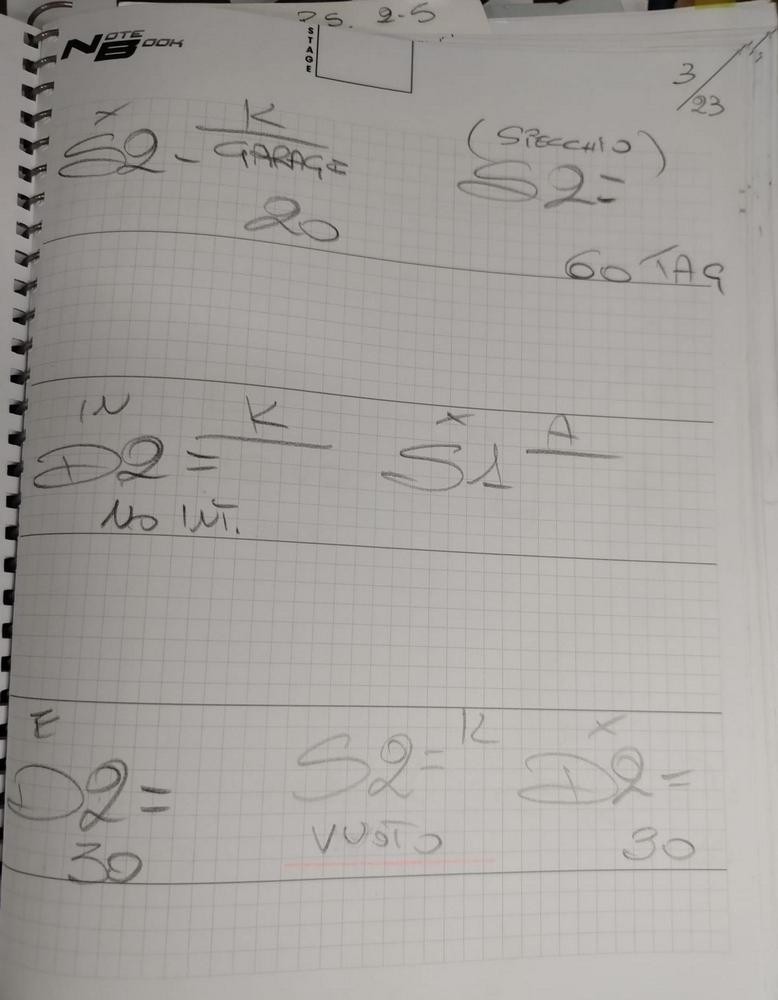 PS. 2-5
NOTE BOOK
STAGE
3/23
X K
S2 - GARAGE
20
(SPECCHIO)
S2=
60 TAG
IN K
D2=
NO INT.
X A
S1
E
D2=
30
S2= K
VUOTO
X
D2=
30